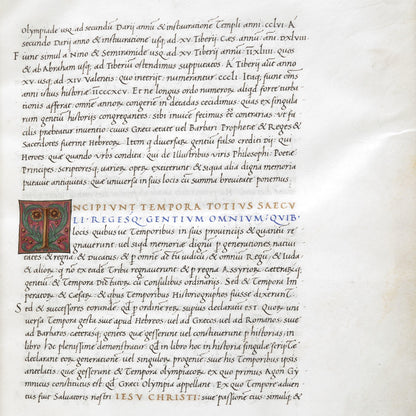 Olympiade usq; ad secundũ Darij annũ & instaurationẽ Templi anni .CCLVI. A
secundo Darij anno & instauratione usq; ad XV Tiberij Cæs annũ ani. DXLVIII
Fiunt simul a Nino & Semiramide usq; ad XV Tiberij annũ IIXLIIII. Quĩs
& ab Abraham usq; ad Tiberiũ ostendimus supputatis. A Tiberij aũt anno
XV. usq; ad XIV Valentis quo interijt numerantur CCCLI. Itaq; fiunt oms
anni istius historiæ IICCCXCV. Et ne longus ordo numerorũ aliqd forte turba
tionis afferat omnẽ annorũ congeriẽ in decadas cecidimus quas ex singula
rum gentiũ historijs congregantes sibi inuicẽ fecimus eẽ contrarias ut fa
cilis præbeatur inuentio cuius Græci ætate uel Barbari Prophetæ & Reges &
Sacerdotes fuerint Hebreorũ. Item q diuersarũ gentiũ falso crediti dij: Qui
Heroes quæ quando urbs condita. Qui de Illustribus uiris Philosophi Poetæ
Principes Scriptoresq; uariorũ operũ extiterint & siqua alia digna memoria
putauit antiquitas quæ uniuersa in suis locis cũ summa breuitate ponemus
INCIPIVNT TEMPORA TOTIVS SAECV
LI. REGESQ; GENTIVM OMNIVM: QVIB
locis quibus ue Temporibus in suis prouincijs & quandiu re
gnauerunt uel siquid memoriæ dignũ p generationes natiui
tates & regna & ducatus & p omnẽ ætatẽ iudicũ & omniũ Regũ & Iuda
& aliorũ q ex eadẽ Tribu regnauerunt & p regna Assyriorũ cæterarũq;
gentiũ & Tempora Diũ fuerũ cũ Consulibus ordinariis. Sed & Tempora Im
peratorum & Cæsarũ & qbus Temporibus Historiographos fuisse dixerunt.
Sed & successores eorundẽ. Qd p ordinẽ reꝝ supius declarauit Est. Quorũ uni
uersa Tempora gesta siue apud Hebreos uel ad Græcos uel ad Romanos siue
ad Barbaros cæterasq; gentes quæ gesserunt uel constituerunt p historias in
libro hoc plenissime demonstrantur. Qd in libro hoc in historia singulæ scriptæ
declarant eorũ generationẽ uel singulorũ progeniẽ suæ his Temporibus ipsis
ænetatis quæ gesserunt & Tempora olympiadorũ. ex quo primus Agon Gy
mnicus constitutus est Qd Græci Olympia appellant. Ex quo Tempore aduen
tus fuit Saluatoris nostri IESV CHRISTI: suæ passione eius simul &